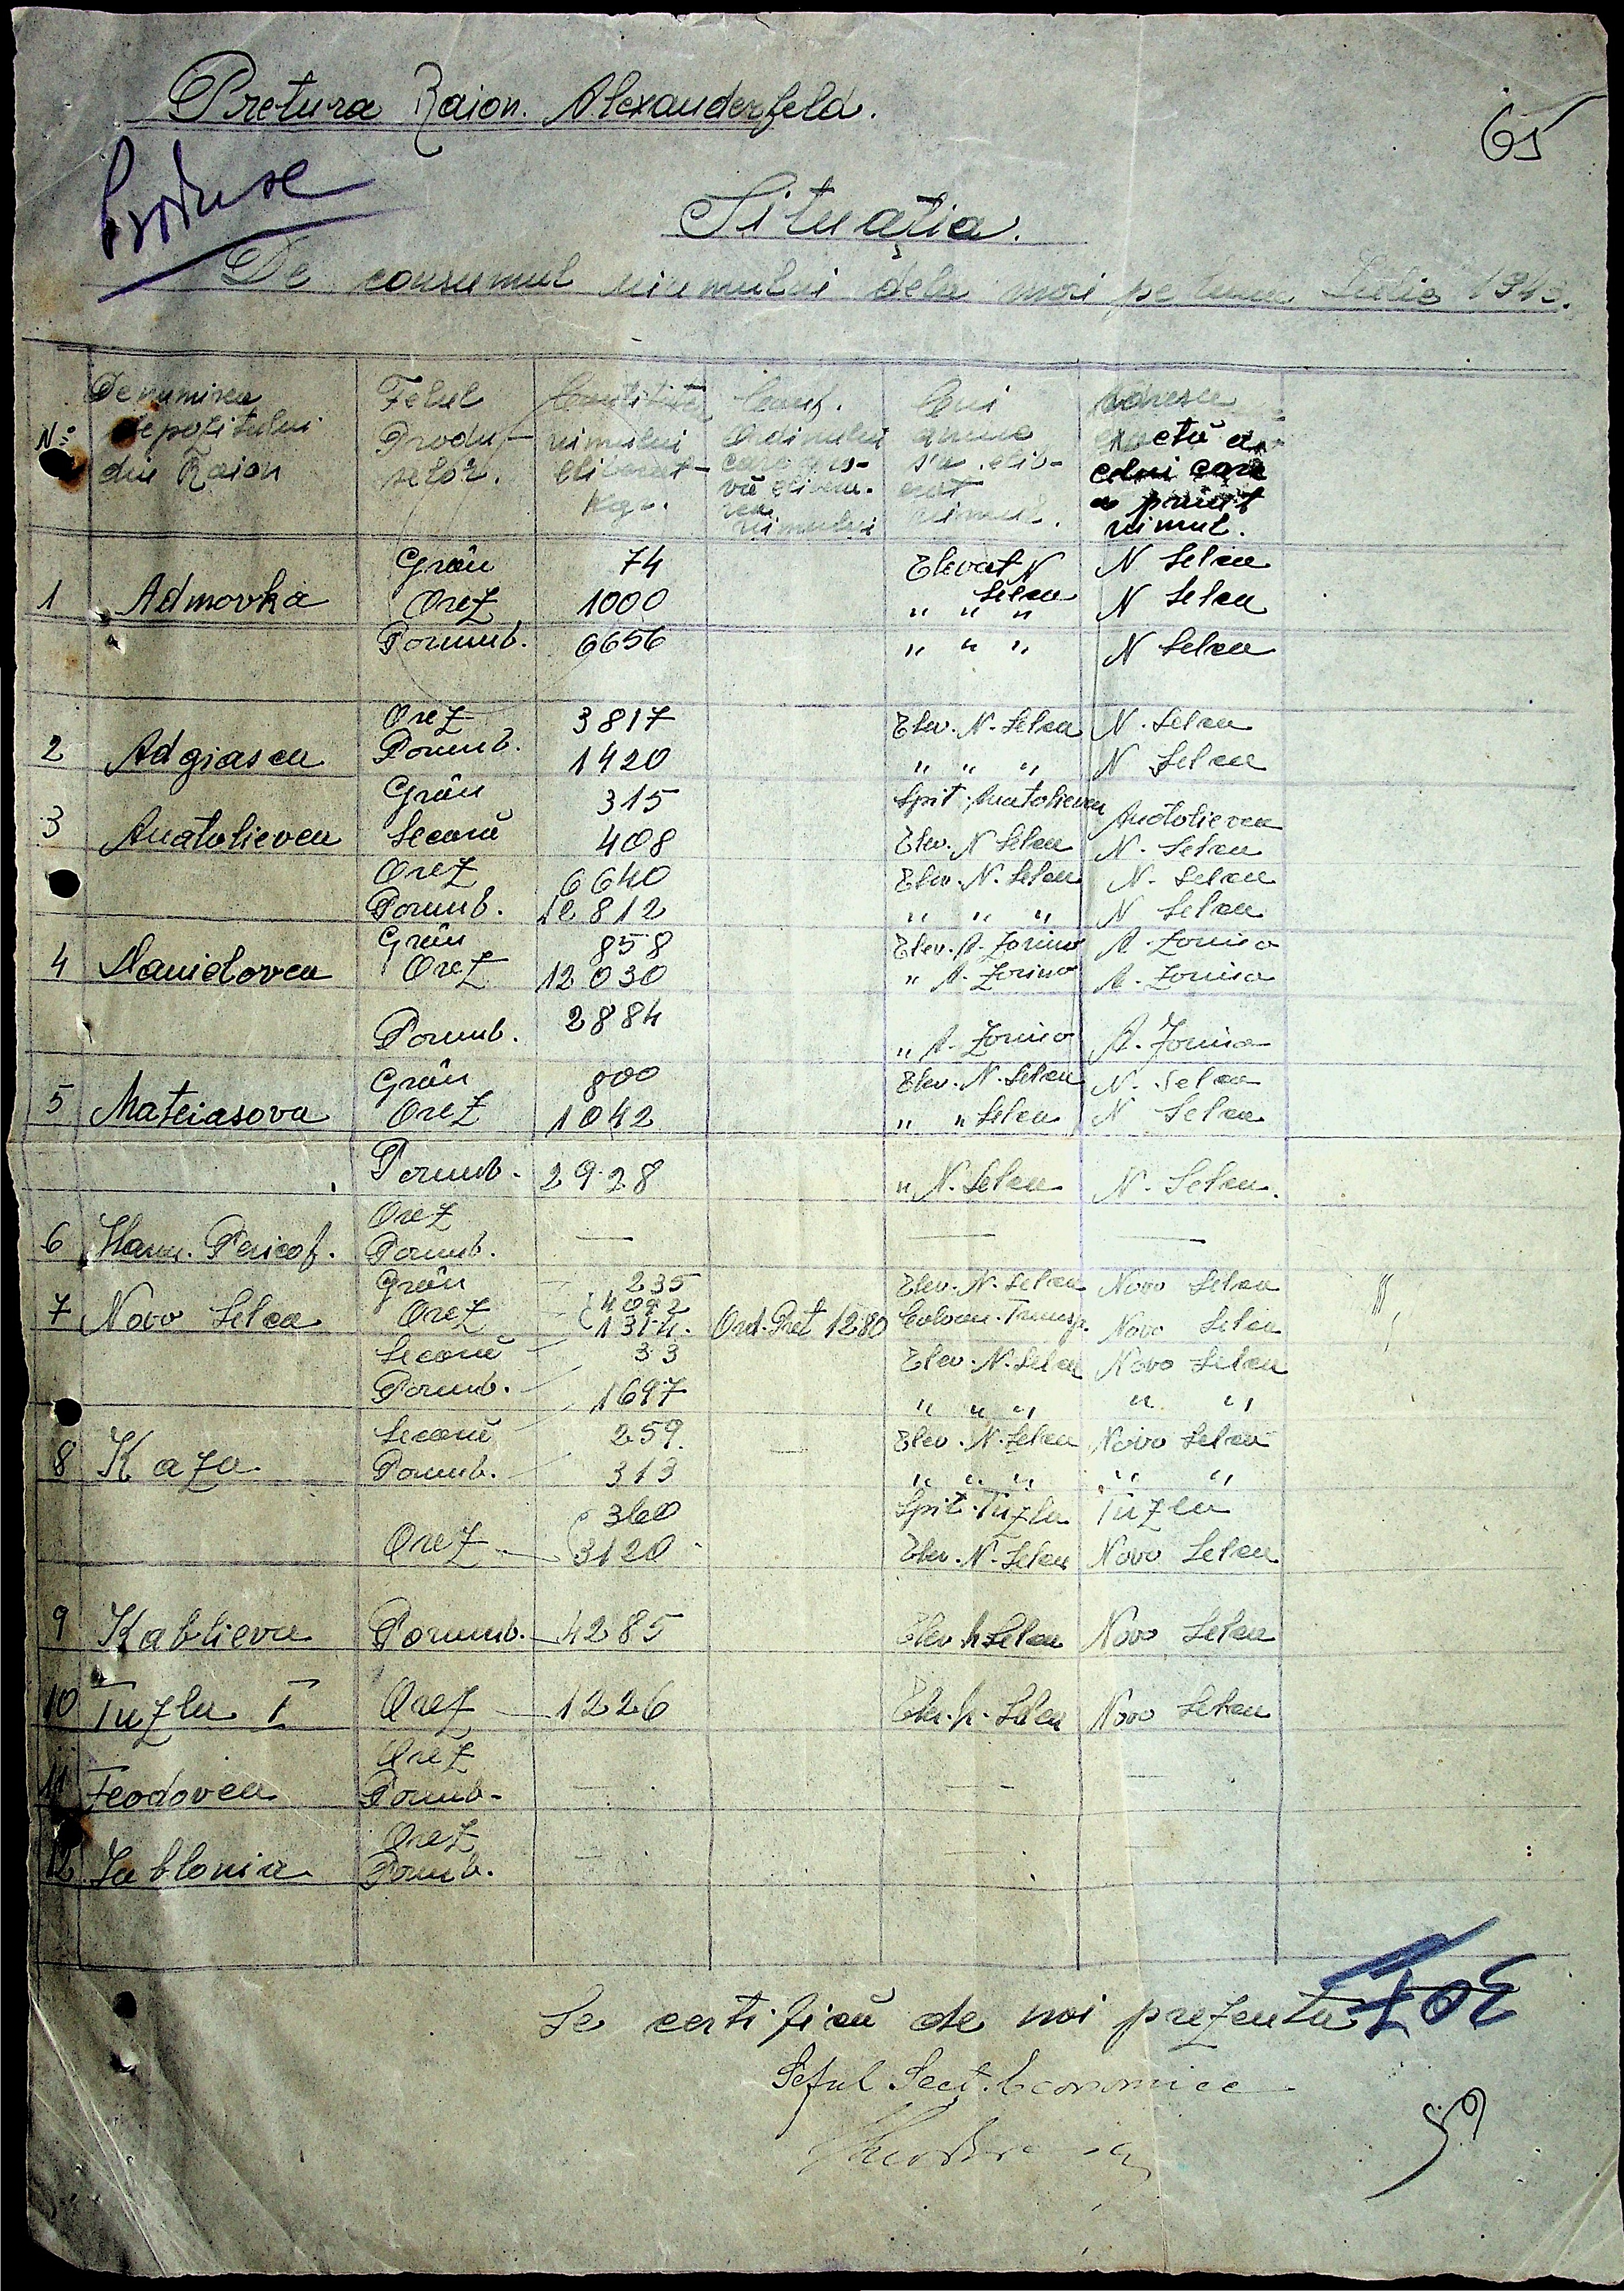 Pretura Raion. Alexanderfeld.
65
Produse
Situația.
De consumul uiumului dela mori pe luna Iulie 194
No Denumirea depozitului din Raion | Felul Produselor. | Cantitatea uimului eliberat Kgr. | Conf. Ordinului care pro- vă elibera- rea uimului | Cui anume s'a elib- erat uimul. | Adresa exactă a celui care a primit uimul.
Grâu 74 Elevat N Selca N Selca
1 Admovka Orez 1000 " " " N Selca
Porumb. 6656 " " " N Selca
Orez 3817 Elev. N. Selca N. Selca
2 Adgiasca Porumb. 1420 " " " N Selca
Grâu 315 Spit. Anatolievca Anatolievca
3 Anatolievca Secară 408 Elev. N Selca N. Selca
Orez 6640 Elev. N. Selca N. Selca
Porumb. 12812 " " " N Selca
Grâu 858 Elev. A. Zorino A. Zorino
4 Danidovca Orez 12030 " A. Zorino A. Zorino
Porumb. 2884 " A. Zorino A. Zorino
Grâu 800 Elev. N. Selca N. Selca
5 Mateiasova Orez 1042 " " Selca N Selca
Porumb. 2928 " N. Selca N. Selca.
Orez
6 Pericof. Porumb. — — —
Grâu 235 Elev. N. Selca Novo Selca
7 Novo Selca Orez 4092
1314. Ord. Pret 1280 Coloan. Transp. Novo Selca
Secară 33 Elev. N. Selca Novo Selca
Porumb. 1697 " " " " "
Secară 259. — Elev. N. Selca Novo Selca
8 Kaza Porumb. 313 " " " " "
360 Spit. Tuzla Tuzla
Orez 3120 Elev. N. Selca Novo Selca
9 Kablieva Porumb. 4285 Elev N Selca Novo Selca
10 Tuzla I Orez 1226 Elev. N. Selca Novo Selca
Orez
11 Feodovca Porumb. — — —
Orez
12 Jablonia Porumb. — — —
Se certifică de noi prezenta
Șeful Sect. Economice
59